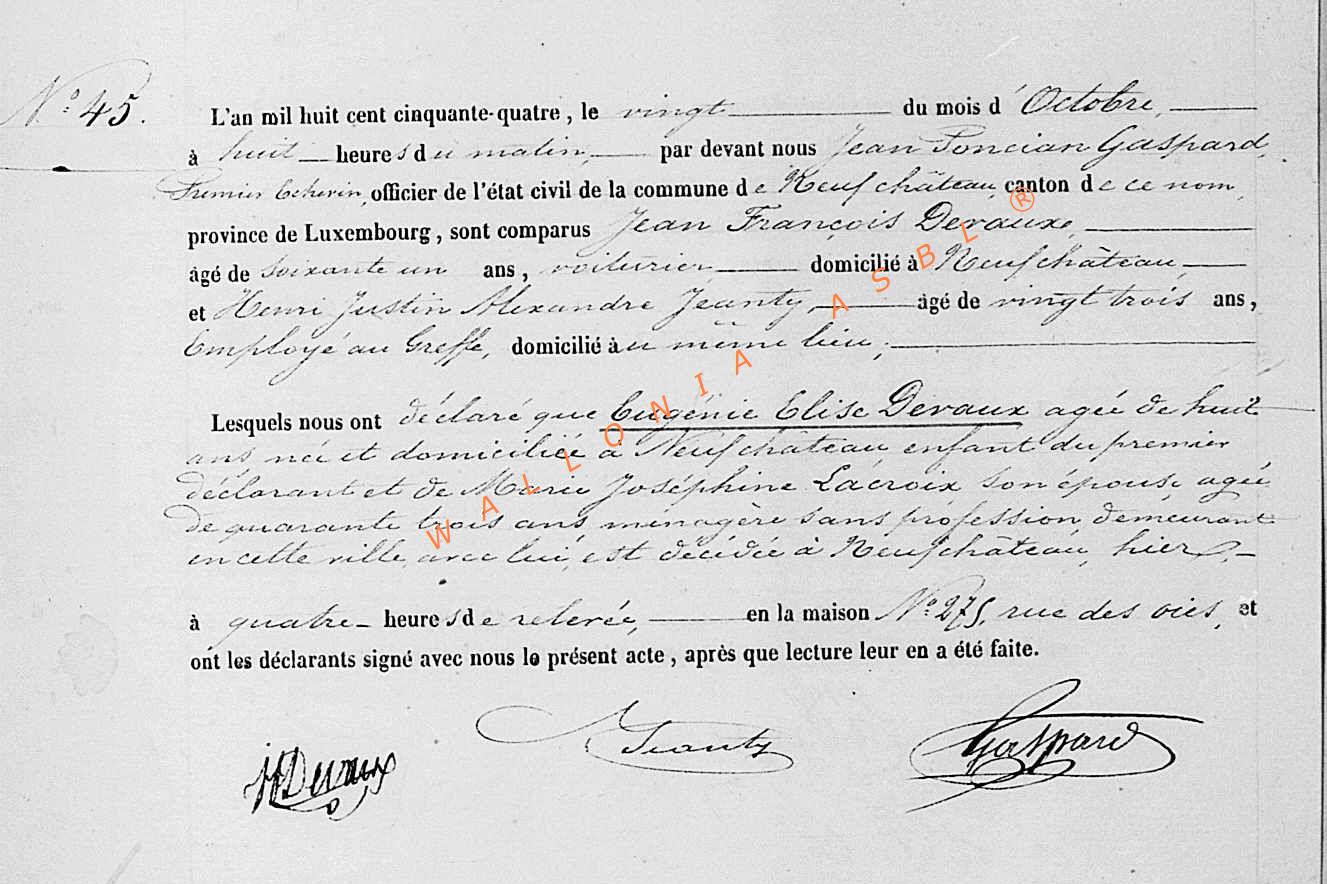 N° 45.
L'an mil huit cent cinquante-quatre, le vingt du mois d' Octobre,
à huit heures du matin, par devant nous Jean Poncian Gaspard,
Premier Echevin, officier de l'état civil de la commune de Neufchâteau, canton de ce nom,
province de Luxembourg, sont comparus Jean François Devaux,
âgé de soixante un ans, voiturier domicilié à Neufchâteau,
et Henri Justin Alexandre Jeanty, âgé de vingt trois ans,
Employé au Greffe, domicilié au même lieu;
Lesquels nous ont déclaré que Eugénie Elise Devaux agée de huit
ans née et domiciliée à Neufchâteau enfant du premier
déclarant et de Marie Joséphine Lacroix son épouse agée
de quarante trois ans ménagère sans profession demeurant
en cette ville avec lui, est décédée à Neufchâteau, hier,
à quatre heures de relevée, en la maison N° 275, rue des oies, et
ont les déclarants signé avec nous le présent acte, après que lecture leur en a été faite.
JFDevaux Jeanty Gaspard
WALLONIA ASBL ®